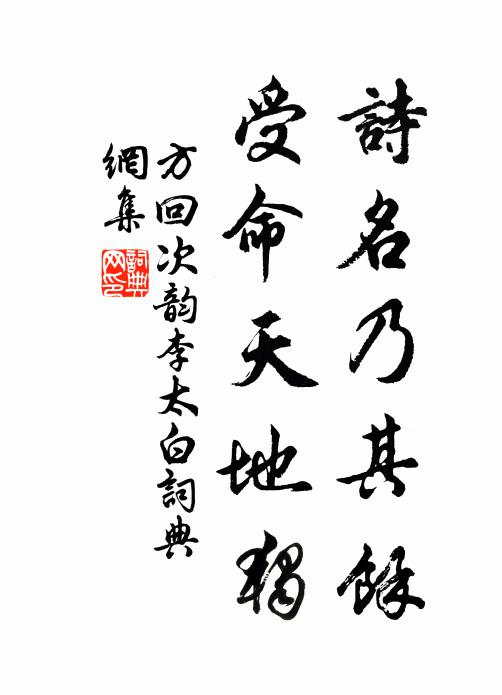 詩名乃其餘
受命天地獨
方回次韵李太白詞典
網集
詞典
网印